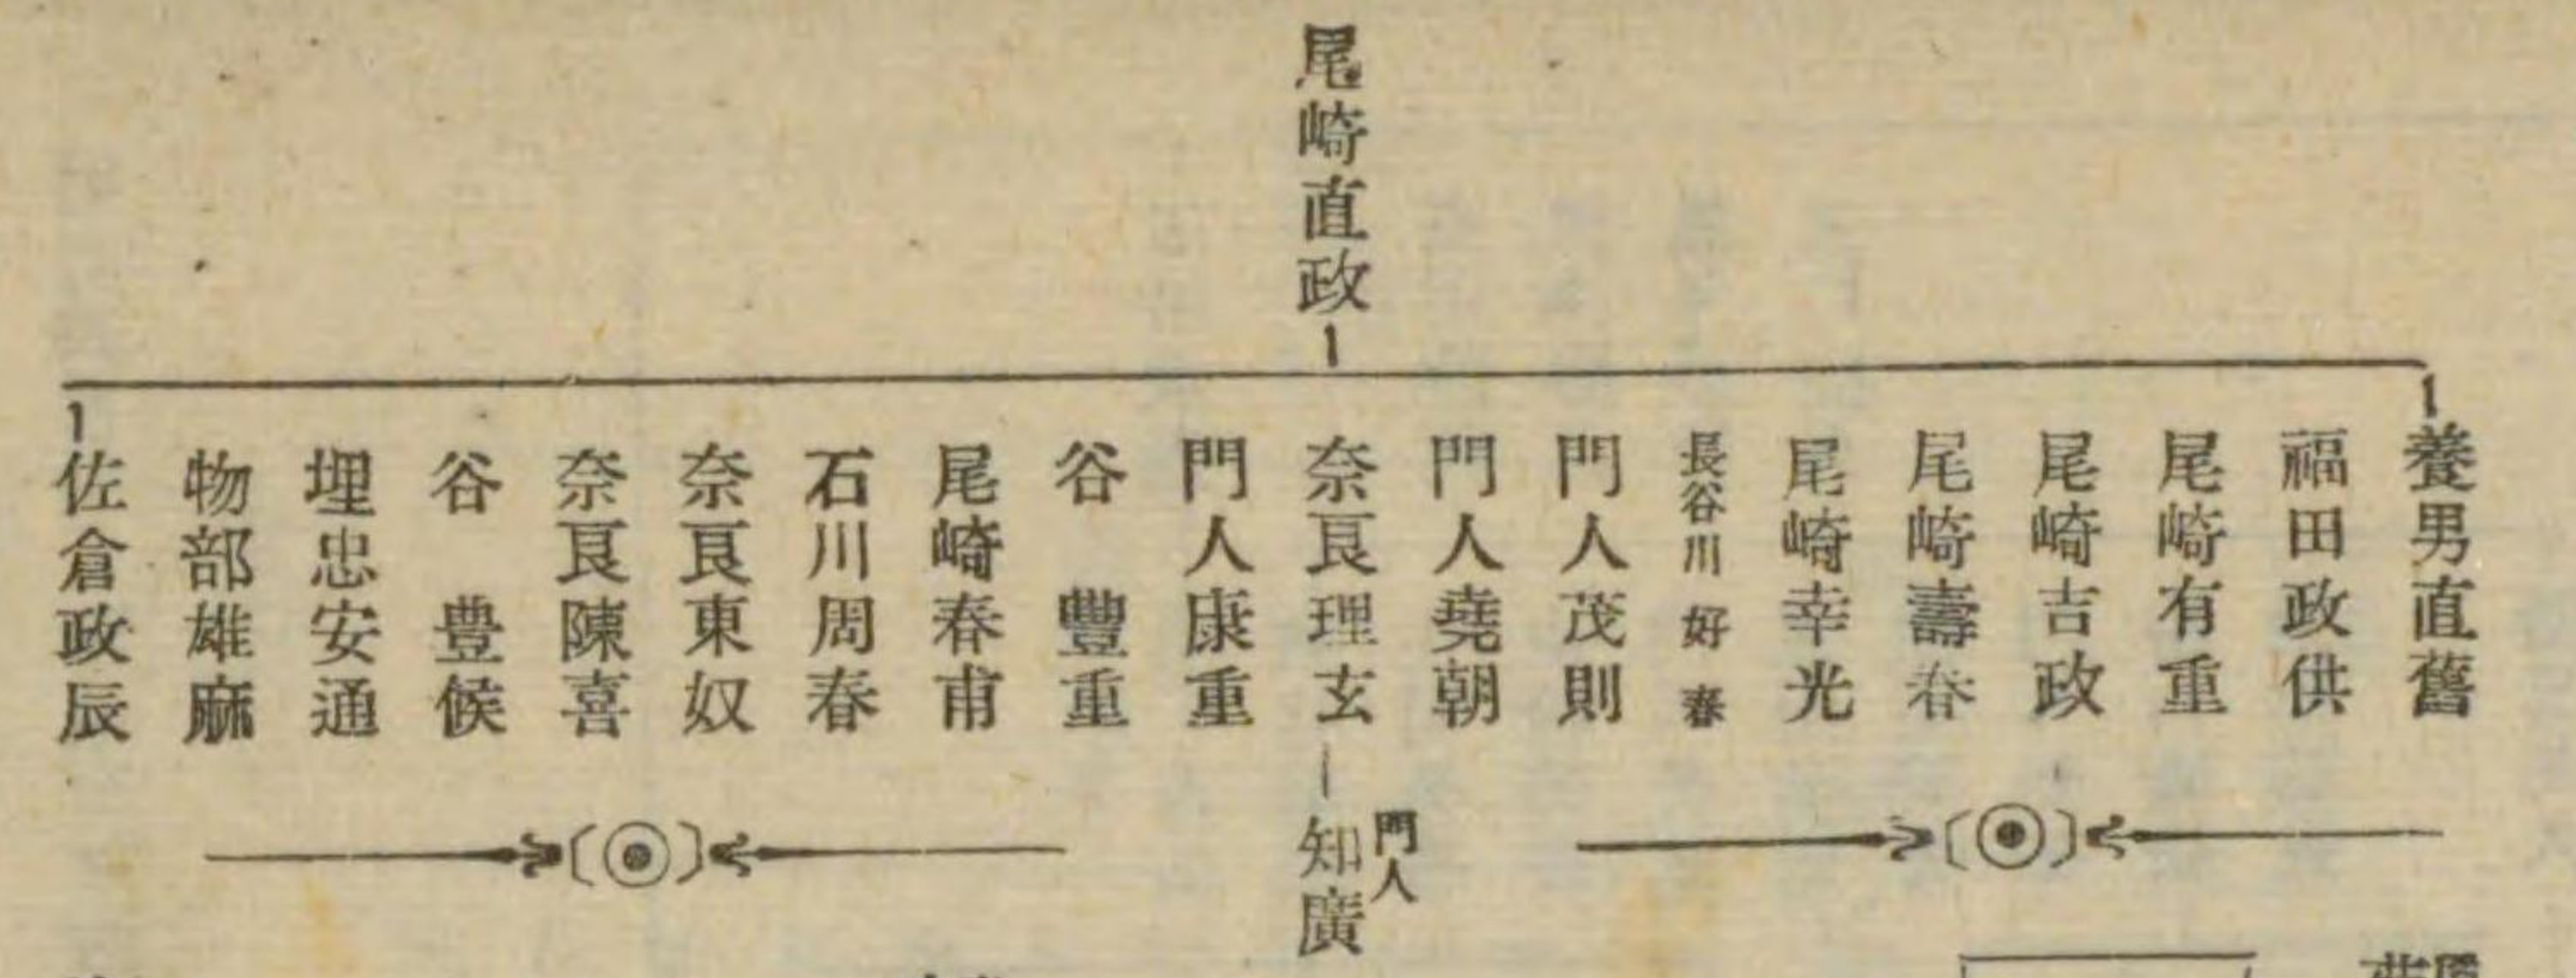 尾崎直政
養男直舊
福田政供
尾崎有重
尾崎吉政
尾崎壽春
尾崎幸光
長谷川好春
門人茂則
門人堯朝
奈良理玄
門人
知廣
門人康重
谷豐重
尾崎春甫
石川周春
奈良東奴
奈良陳喜
谷豊候
埋忠安通
物部雄麻
佐倉政辰